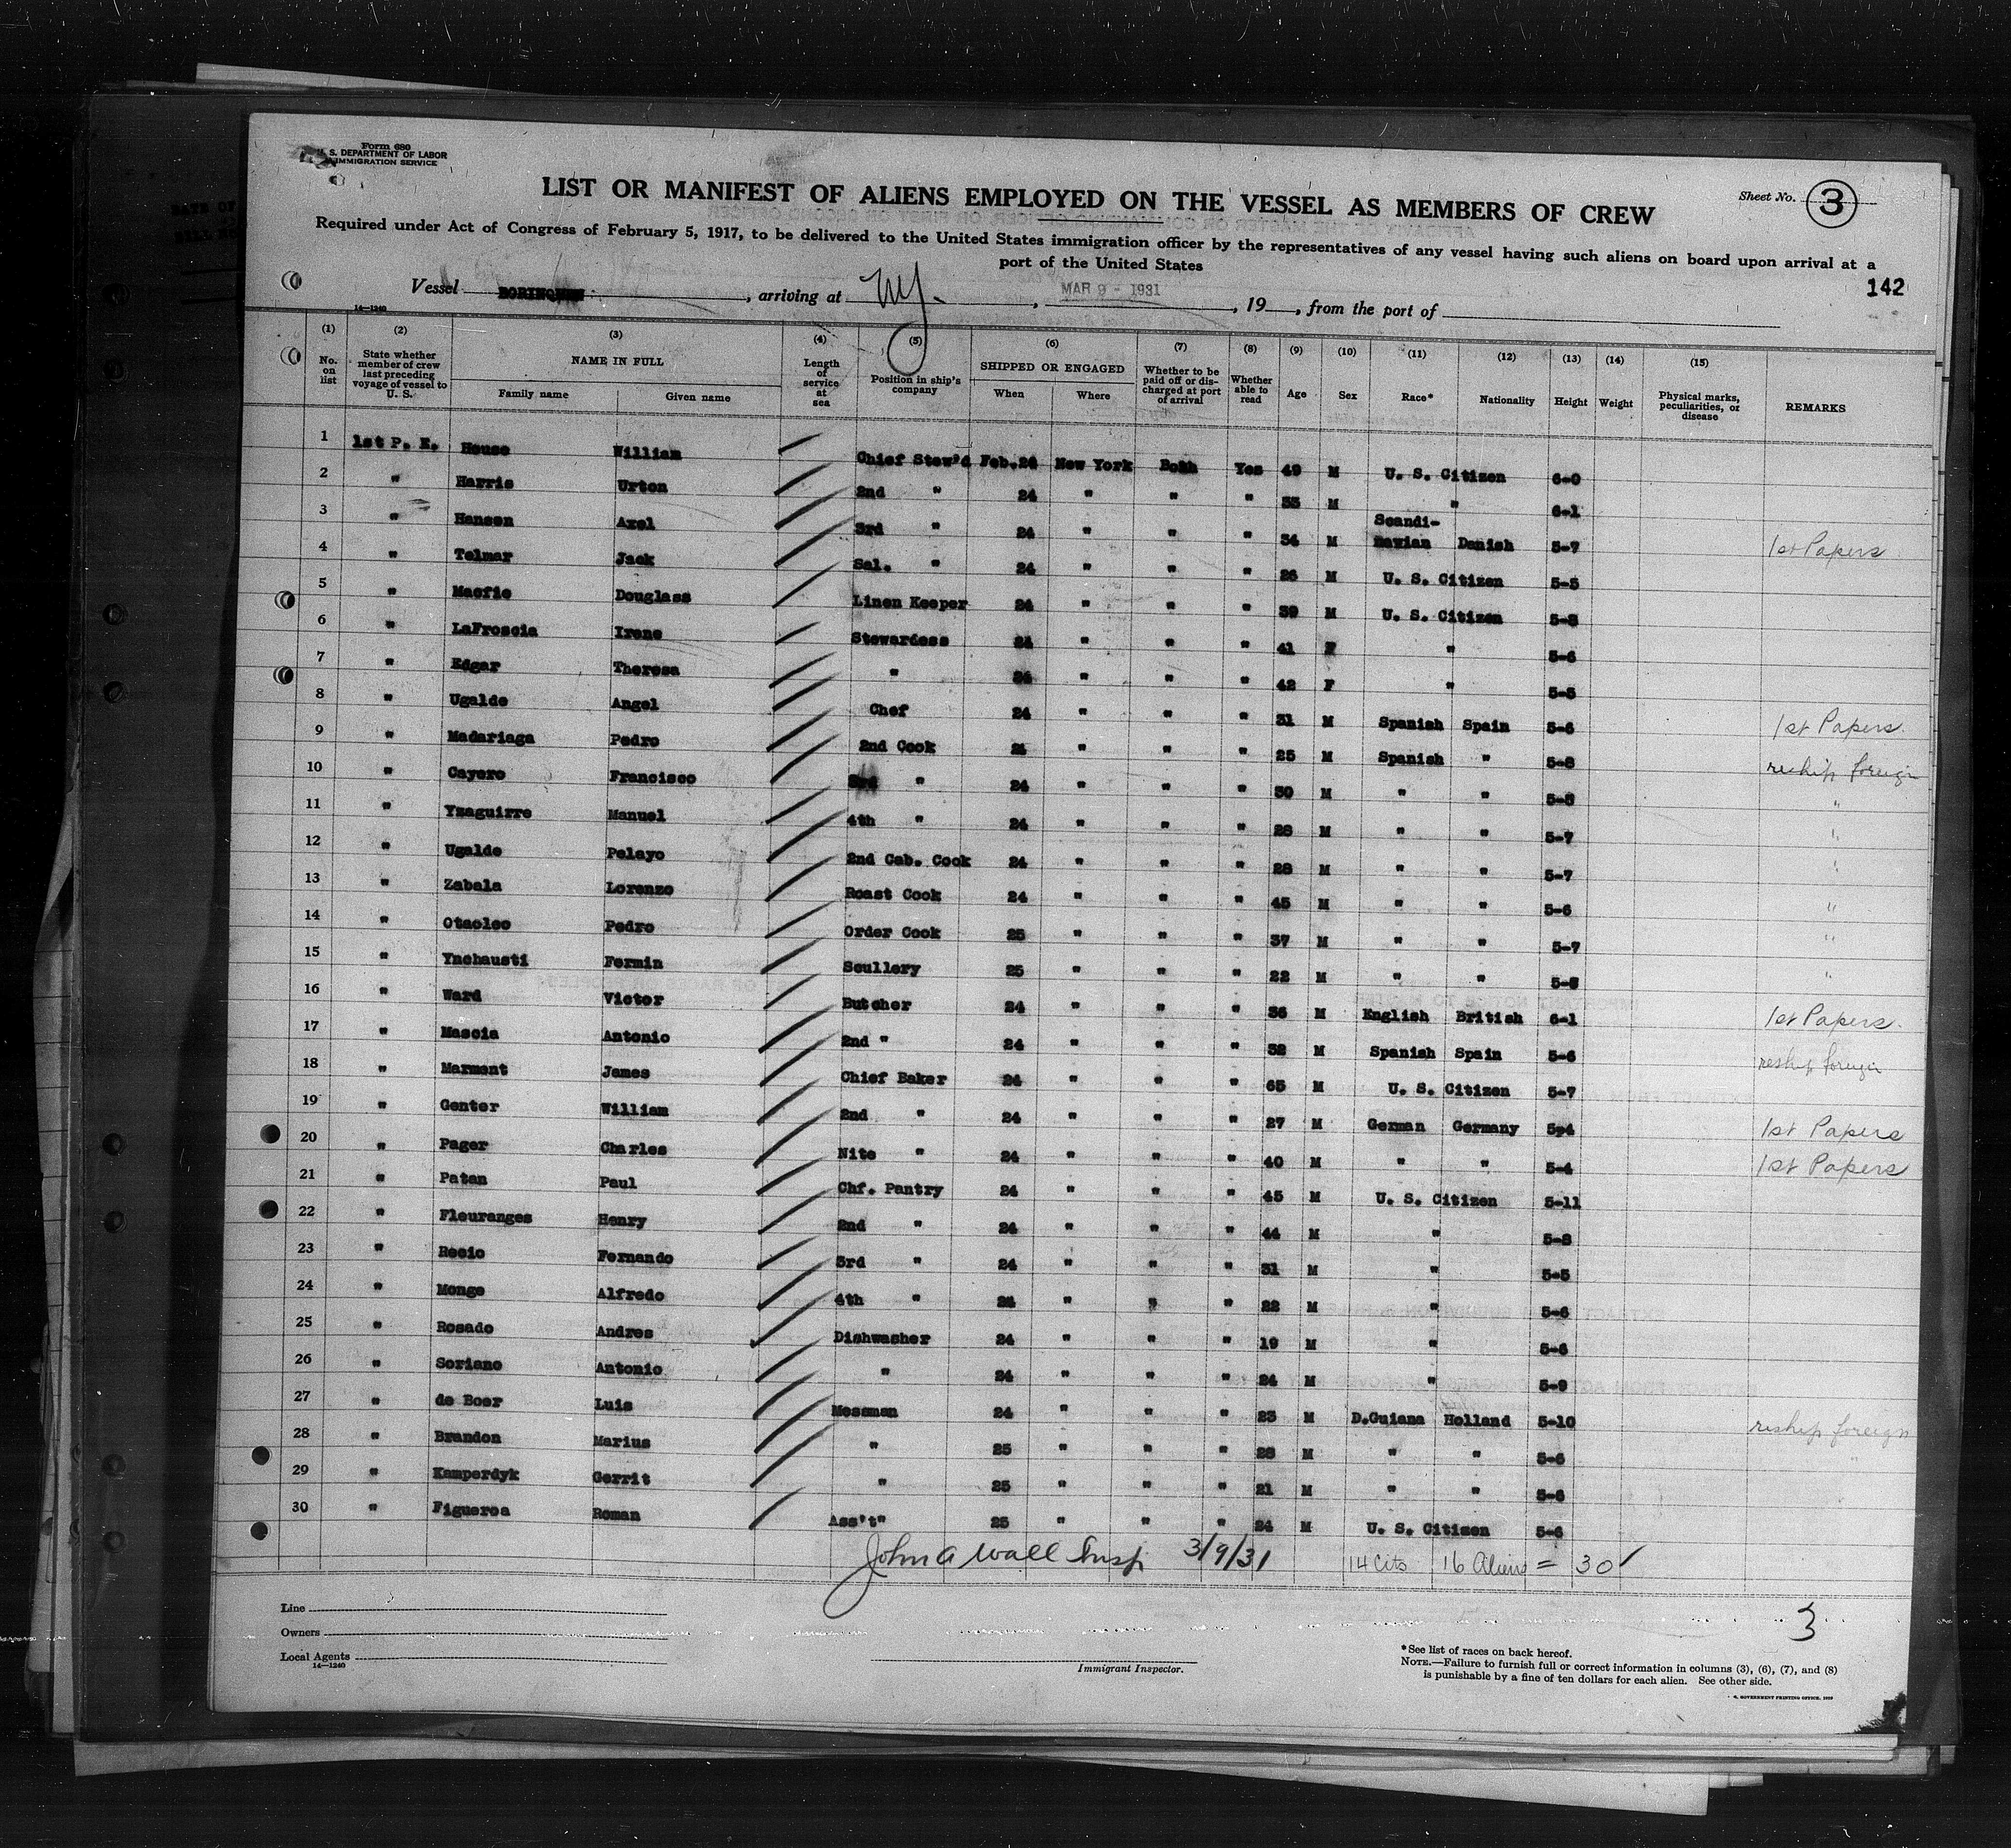 Form 680
U. S. DEPARTMENT OF LABOR
IMMIGRATION SERVICE
Sheet No. 3
LIST OR MANIFEST OF ALIENS EMPLOYED ON THE VESSEL AS MEMBERS OF CREW
Required under Act of Congress of February 5, 1917, to be delivered to the United States immigration officer by the representatives of any vessel having such aliens on board upon arrival at a
port of the United States
142
Vessel BORINQUEN, arriving at NY., MAR 9 - 1931, 19, from the port of
14—1240
(1) (2) (3) (4) (5) (6) (7) (8) (9) (10) (11) (12) (13) (14) (15)
No. on list State whether member of crew last preceding voyage of vessel to U. S. NAME IN FULL Family name Given name Length of service at sea Position in ship's company SHIPPED OR ENGAGED When Where Whether to be paid off or discharged at port of arrival Whether able to read Age Sex Race* Nationality Height Weight Physical marks, peculiarities, or disease REMARKS
1 1st P. E. House William Chief Stew'd Feb.24 New York Both Yes 49 M U. S. Citizen 6-0
2 " Harris Urton 2nd " 24 " " " 35 M " 6-1
3 " Hansen Axel 3rd " 24 " " " 34 M Scandi-navian Danish 5-7 1st Papers
4 " Telmar Jack Sal. " 24 " " " 26 M U. S. Citizen 5-5
5 " Macfie Douglass Linen Keeper 24 " " " 39 M U. S. Citizen 5-8
6 " LaFroscia Irene Stewardess 24 " " " 41 F " 5-6
7 " Edgar Theresa " 24 " " " 42 F " 5-5
8 " Ugalde Angel Chef 24 " " " 31 M Spanish Spain 5-6 1st Papers
9 " Madariaga Pedro 2nd Cook 24 " " " 25 M Spanish " 5-8 reship foreign
10 " Cayero Francisco 3rd " 24 " " " 30 M " " 5-8 "
11 " Yzaguirre Manuel 4th " 24 " " " 28 M " " 5-7 "
12 " Ugalde Pelayo 2nd Cab. Cook 24 " " " 28 M " " 5-7 "
13 " Zabala Lorenzo Roast Cook 24 " " " 45 M " " 5-6 "
14 " Otaoleo Pedro Order Cook 25 " " " 37 M " " 5-7 "
15 " Ynchausti Fermin Scullery 25 " " " 22 M " " 5-8 "
16 " Ward Victor Butcher 24 " " " 36 M English British 6-1 1st Papers
17 " Mascia Antonio 2nd " 24 " " " 32 M Spanish Spain 5-6 reship foreign
18 " Marmont James Chief Baker 24 " " " 65 M U. S. Citizen 5-7
19 " Genter William 2nd " 24 " " " 27 M German Germany 5-4 1st Papers
20 " Pager Charles Nite " 24 " " " 40 M " " 5-4 1st Papers
21 " Patan Paul Chf. Pantry 24 " " " 45 M U. S. Citizen 5-11
22 " Fleuranges Henry 2nd " 24 " " " 44 M " 5-8
23 " Recio Fernando 3rd " 24 " " " 31 M " 5-5
24 " Monge Alfredo 4th " 24 " " " 22 M " 5-6
25 " Rosado Andres Dishwasher 24 " " " 19 M " 5-6
26 " Soriano Antonio " 24 " " " 24 M " 5-9
27 " de Boer Luis Messman 24 " " " 23 M D.Guiana Holland 5-10 reship foreign
28 " Brandon Marius " 25 " " " 28 M " " 5-6 "
29 " Kamperdyk Gerrit " 25 " " " 21 M " " 5-6
30 " Figueroa Roman Ass't" 25 " " " 24 M U. S. Citizen 5-6
John A Wall Insp 3/9/31 14 Cits 16 Aliens = 30
3
Line
Owners
Local Agents
14—1240
Immigrant Inspector.
*See list of races on back hereof.
NOTE.—Failure to furnish full or correct information in columns (3), (6), (7), and (8)
is punishable by a fine of ten dollars for each alien. See other side.
GOVERNMENT PRINTING OFFICE